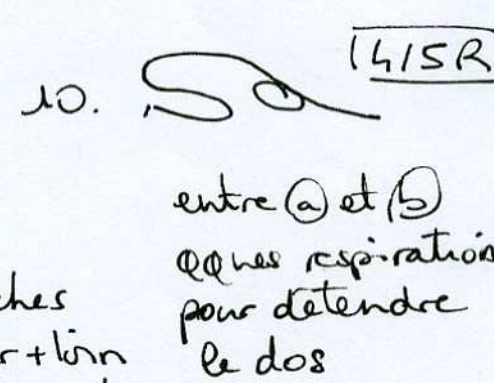 10.
1415R
entre ⓐ et ⓑ
QQues respirations
pour détendre
le dos
ches
r + loin